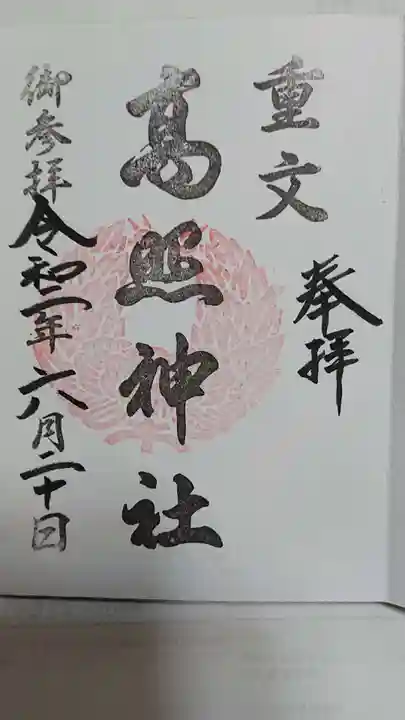 重文
奉拝
高照神社
御参拝 令和一年六月二十日